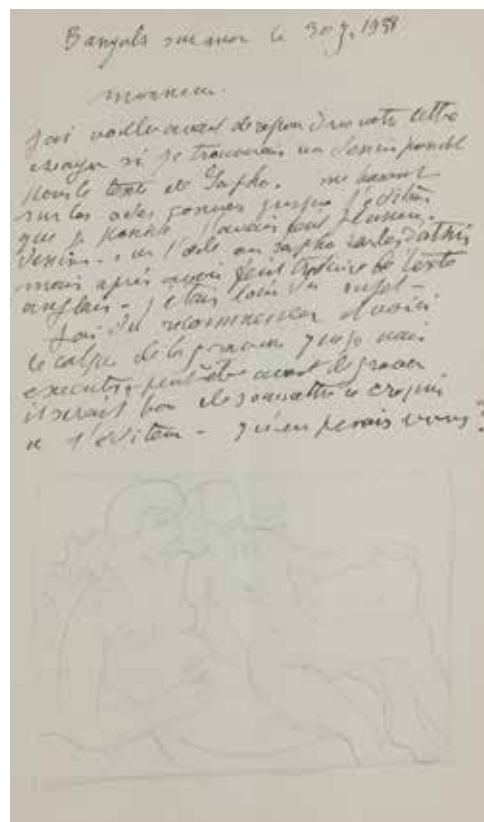 Banyuls sur mer le 30 J. 1938
Monsieur.
J'ai voulu avant de repondre votre lettre
essayer si je trouverais un dessin possible
pour le texte de Sapho. me basant
sur les odes connues jusque
que je j'avais fait plusieurs
dessins sur l'ode ou sapho parle d'athis
mais après avoir fait traduire le texte
anglais - J'etais loin du sujet -
J'ai du recommencer et voici
le calque de la gravure que je vais
executer - peut-être avant de graver
il serait bon de soumettre ce croquis
a l'editeur - qu'en pensez vous?